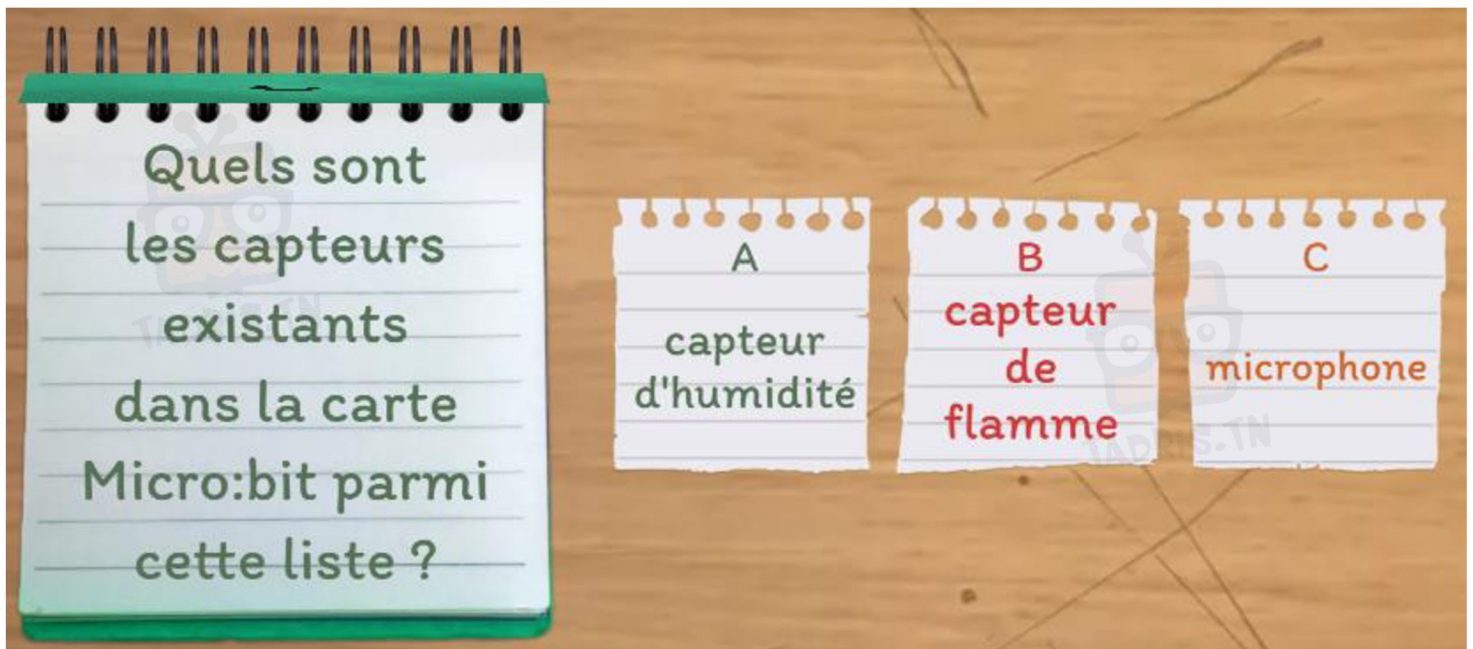 Quels sont
les capteurs
existants
dans la carte
Micro:bit parmi
cette liste ?
A
capteur
d'humidité
B
capteur
de
flamme
C
microphone
TADRIS.TN
TADRIS.TN